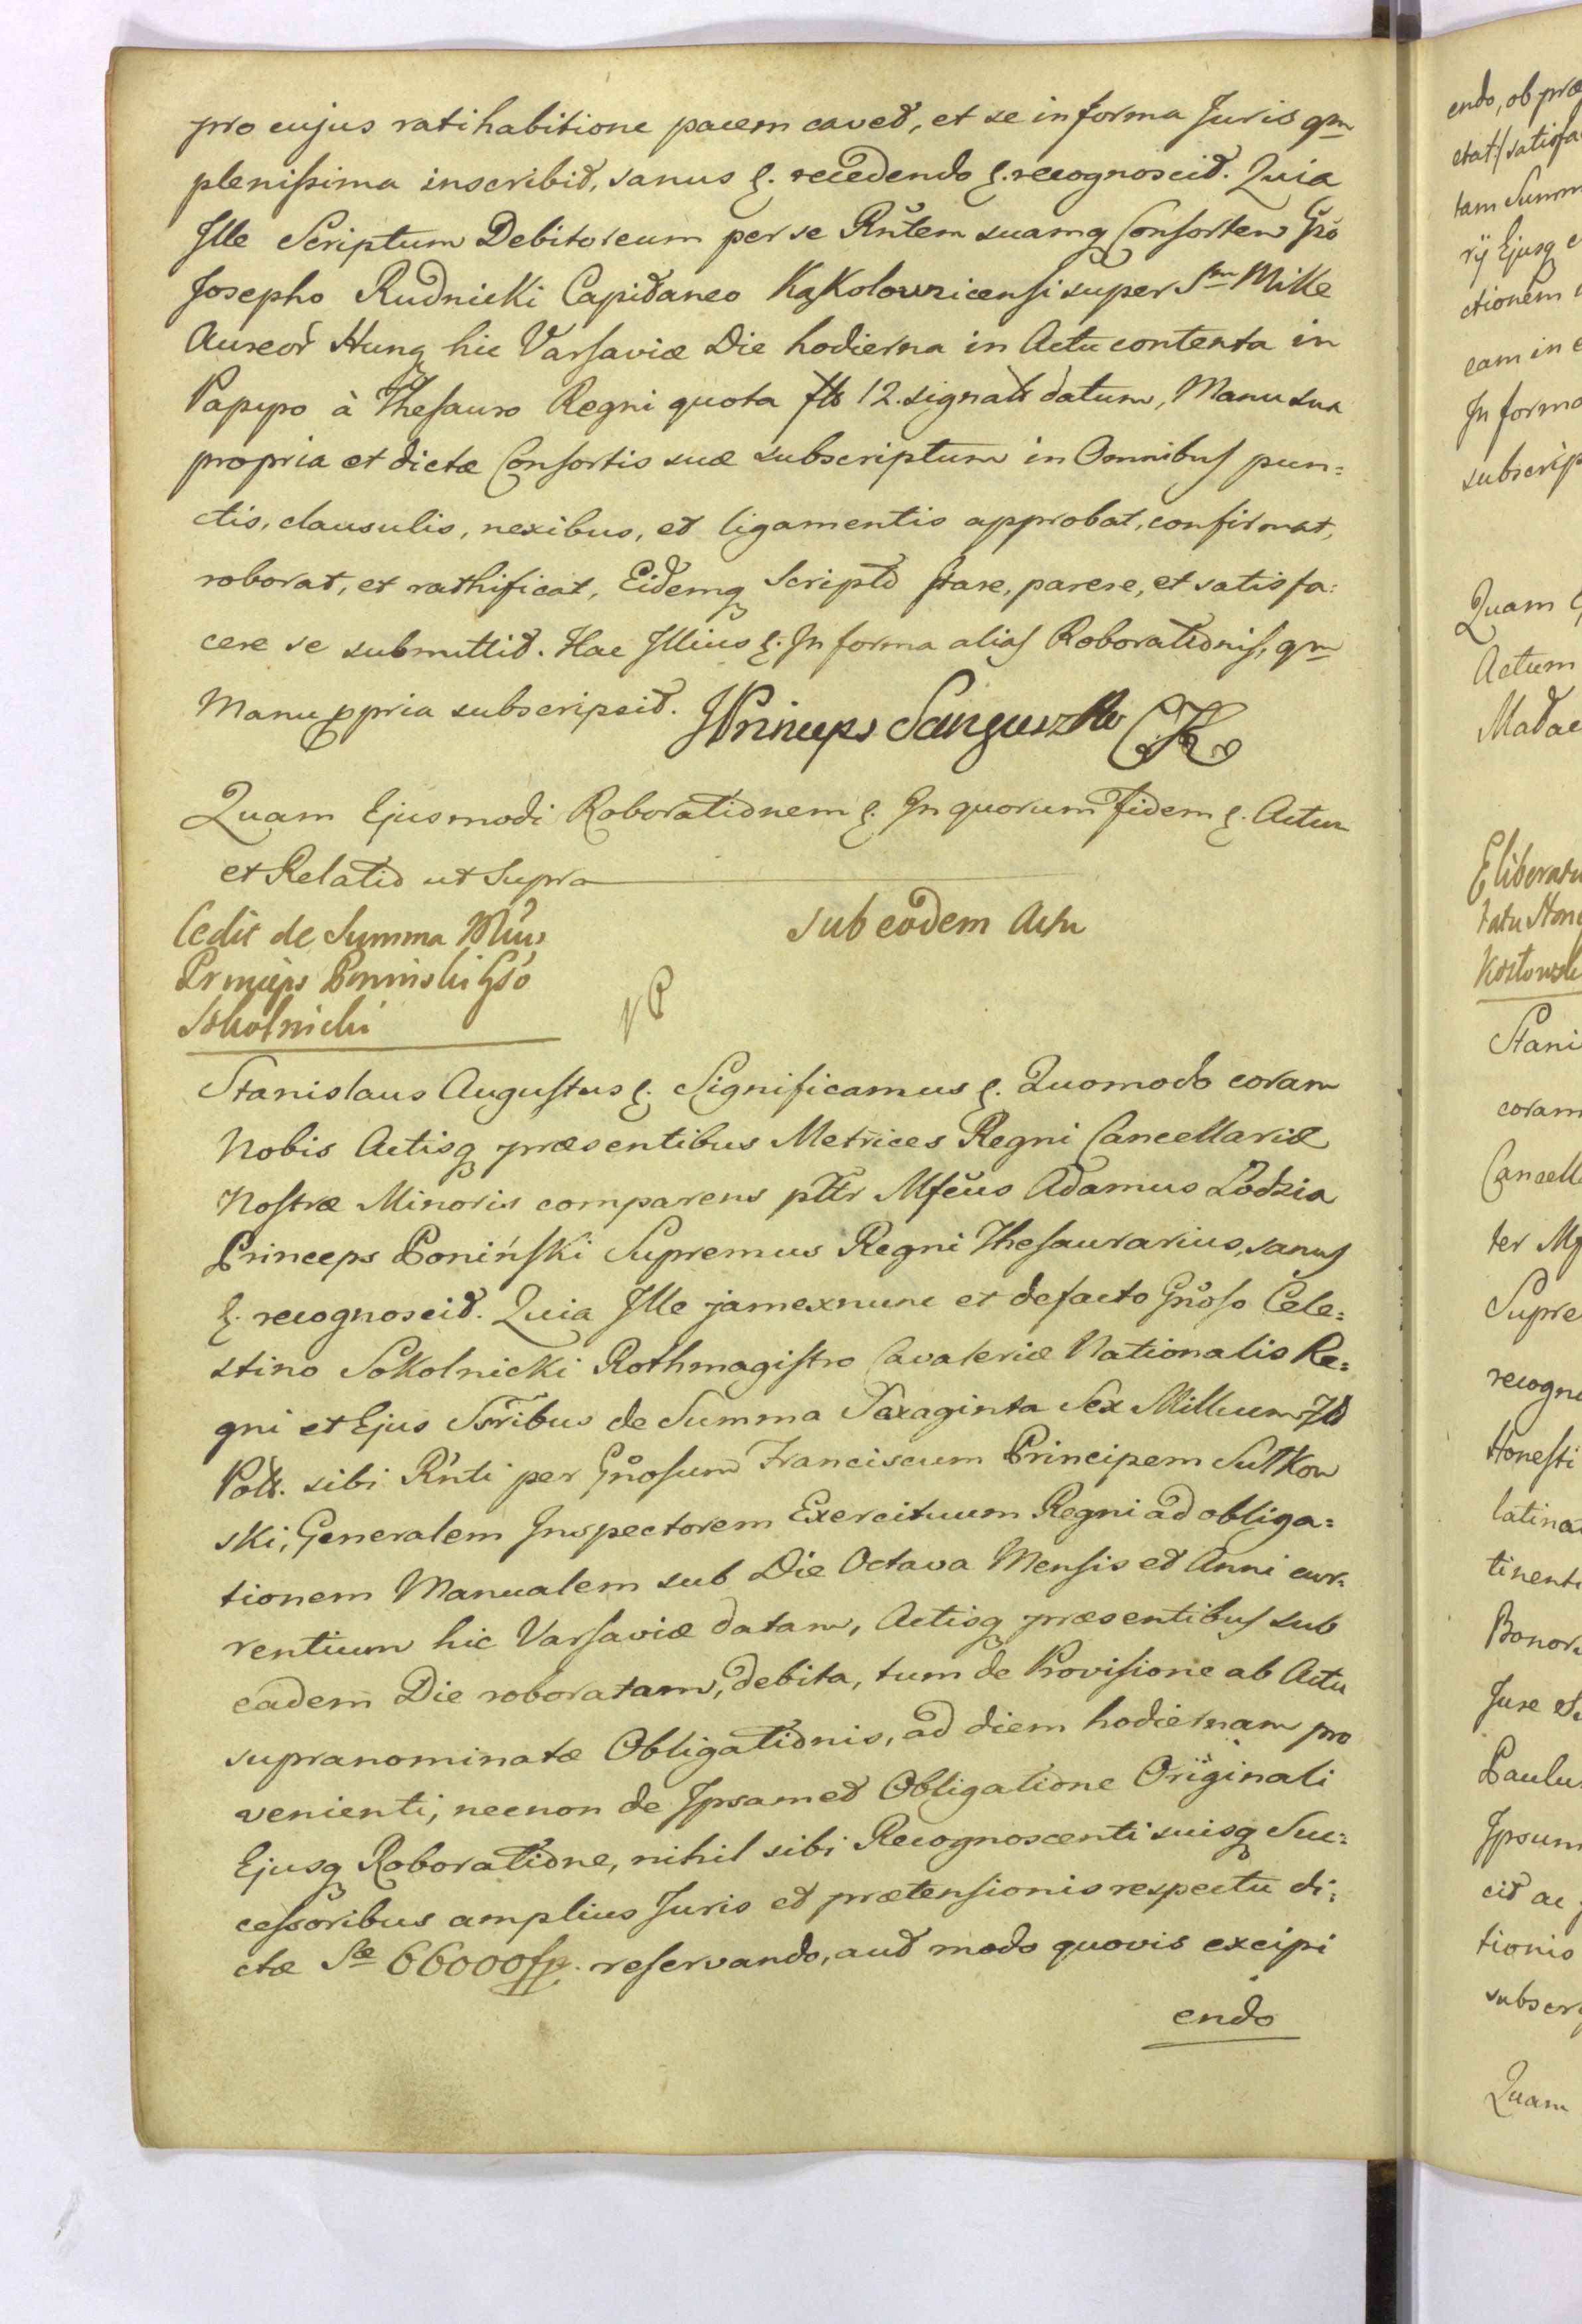 pro cujus ratihabitione pacem caved, et se in forma Juris qm
plenissima inscribit, sanus &. recedendo &. recognoscit. Quia
Ille Scriptum Debitoreum per se Rñtem suamq Consortem Gño
Josepho Rudnicki Capitaneo Kąkolownicensi super Sm Mille
Aureor Hung hic Varsaviæ Die hodierna in Actu contenta in
Papyro à Thesauro Regni quota flo 12. signato datum, Manu sua
propria et dictæ Consortis suæ subscriptum in Omnibus pun=
ctis, clausulis, nexibus, et ligamentis approbat, confirmat,
roborat, et rathificat, Eidemq Scripto stare, parere, et satisfa=
cere se submittit. Hac Illius &. In forma alias Roborationis, qm
Manu ppria subscripsit. JPrinceps Sanguszko
Quam Ejusmodi Roborationem &. In quorum Fidem &. Actum
et Relatio ut Supra
Cedit de Summa
Princeps Poninski Gso
Sokolnicki
sub eodem Actu
Stanislaus Augustus &. Significamus &. Quomodo coram
Nobis Actisq præsentibus Metrices Regni Cancellariæ
Nostræ Minoris comparens pltr Mfcus Adamus Łodzia
Princeps Poniński Supremus Regni Thesaurarius, sanus
&. recognoscit. Quia Ille jam exnunc et defacto Gñoso Cele=
stino Sokolnicki Rothmagistro Cavaleriæ Nationalis Re=
gni et Ejus Ssribus de Summa Sexaginta Sex Millium flo
Polo. sibi Rñti per Gñosum Franciscum Principem Sułkow
ski, Generalem Inspectorem Exercituum Regni ad obliga=
tionem Manualem sub Die Octava Mensis et Anni cur=
rentium hic Varsaviæ datam, Actisq præsentibus sub
eadem Die roboratam, debita, tum de Provisione ab Actu
supranominatæ Obligationis, ad diem hodiernam pro
venienti, necnon de Ipsamet Obligatione Originali
Ejusq Roboratione, nihil sibi Recognoscenti suisq Suc=
cessoribus amplius Juris et prætensionis respectu di=
ctæ Sæ 66000 fp. reservando, aut modo quovis excipi
endo
endo, ob præ
ctat:/ satisfa
tam Summ
rij Ejusq
ctionem
eam in
In forma
subscrip
Quam
Actum
Kozłowsk
Stani
coram
Cancella
ter
Supre
recogn
Honesti
latina
tinent
Bonor
Jure
Paulu
Ipsum
cit ac
tionis
subscr
Quam